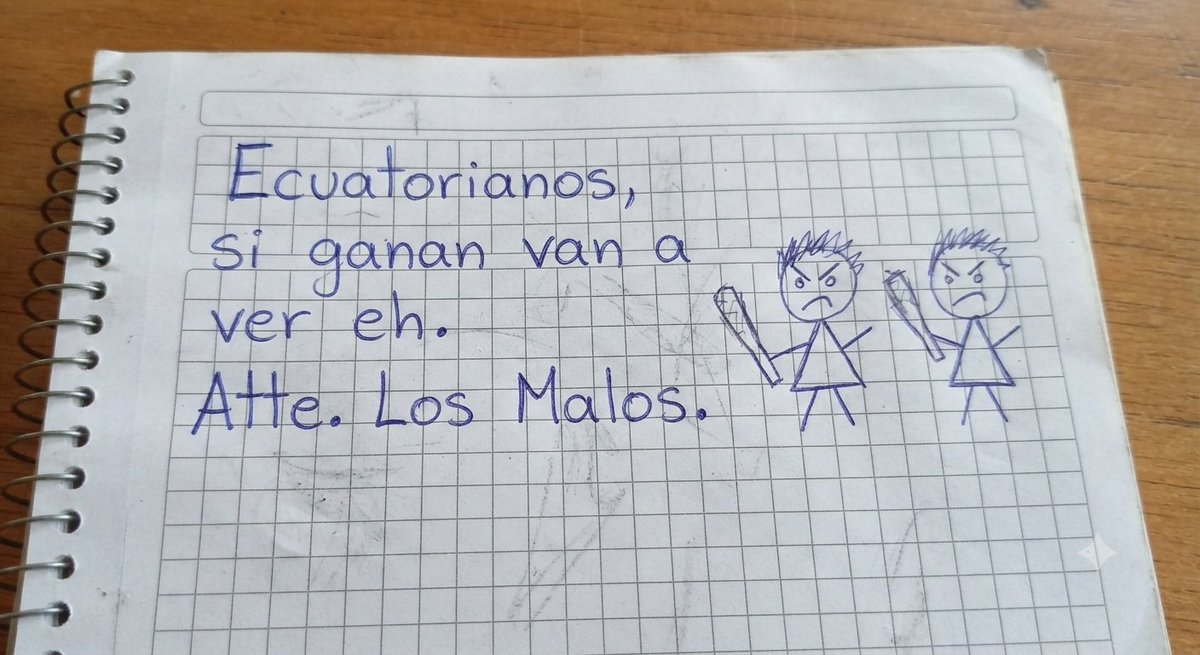 Ecuatorianos,
si ganan van a
ver eh.
Atte. Los Malos.